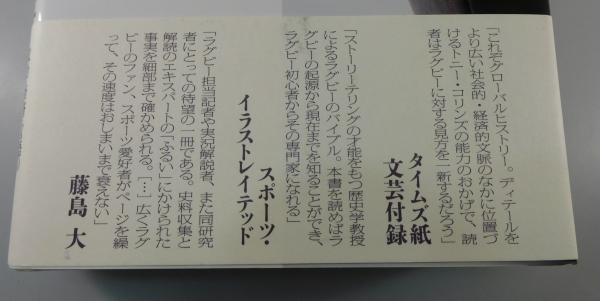 「これぞグローバルヒストリー。ディテールを
より広い社会的・経済的文脈のなかに位置づ
けるトニー・コリンズの能力のおかげで、読
者はラグビーに対する見方を一新するだろう」
タイムズ紙
文芸付録
「ストーリーテリングの才能をもつ歴史学教授
によるラグビーのバイブル。本書を読めばラ
グビーの起源から現在までを知ることができ、
ラグビー初心者からその専門家になれる」
スポーツ・
イラストレイテッド
「ラグビー担当記者や実況解説者、また同研究
者にとっての待望の一冊である。史料収集と
解読のエキスパートの「ふるい」にかけられた
事実を細部まで確かめられる。[…]広くラグ
ビーのファン、スポーツ愛好者がページを繰
って、その速度はおしまいまで衰えない」
藤島 大